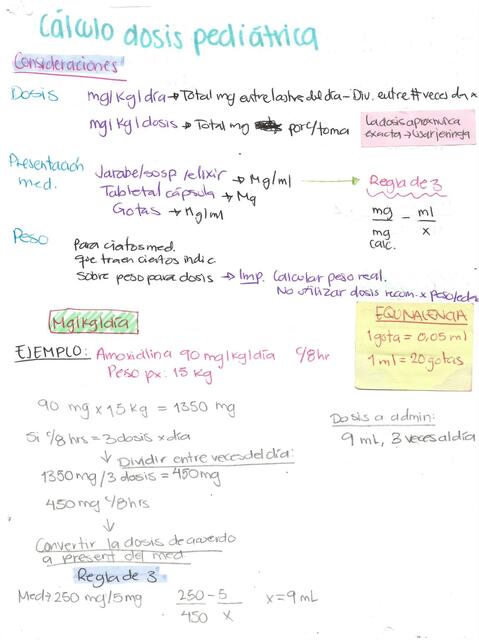 Cálculo dosis pediátrica
Consideraciones
Dosis mg/kg/día → Total mg entre las hrs del día - Div. entre # veces da x
mg/kg/dosis → Total mg por c/toma
La dosis aprox nunca exacta → Usar jeringa
Presentación med.
Jarabe/sosp/elixir → Mg/ml → Regla de 3
Tableta/cápsula → Mg
Gotas → Mg/ml
mg - ml
mg calc. x
Peso
Para ciertos med.
que traen ciertos indic
sobre peso para dosis → Imp. Calcular peso real.
No utilizar dosis recom. x peso/edad
EQUIVALENCIA
1 gota = 0,05 ml
1 ml = 20 gotas
Mg/kg/día
EJEMPLO: Amoxicilina 90 mg/kg/día c/8hr
Peso px: 15 kg
90 mg x 15 kg = 1350 mg
Si c/8 hrs = 3 dosis x día
↓ Dividir entre veces del día:
1350 mg/3 dosis = 450mg
450 mg c/8hrs
↓
Convertir la dosis de acuerdo
a present del med.
Regla de 3
Med → 250 mg/5mg
250 - 5
450 x
x = 9 mL
Dosis a admin:
9 mL, 3 veces al día